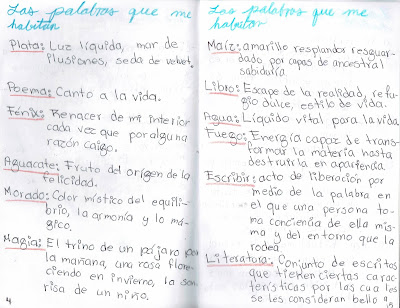 Las palabras que me
habitan
Plata: Luz líquida, mar de
ilusiones, seda de velvet.
Poema: Canto a la vida.
Fénix: Renacer de mi interior
cada vez que por alguna
razón caigo.
Aguacate: Fruto del orígen de la
felicidad.
Morado: Color místico del equili-
brio, la armonía y lo má-
gico.
Magia: El trino de un pájaro por
la mañana, una rosa flore-
ciendo en invierno, la son-
risa de un niño.
4
Las palabras que me
habitan
Maíz: amarillo resplandor resguar-
dado por capas de ancestral
sabiduría
Libro: Escape de la realidad, refu-
gio dulce, estilo de vida.
Agua: Líquido vital para la vida
Fuego: Energía capaz de trans-
formar la materia hasta
destruirla en apariencia
Escribir: acto de liberación por
medio de la palabra en
el que una persona to-
ma conciencia de ella mis-
ma y del entorno que la
rodea.
Literatura: Conjunto de escritos
que tienen ciertas carac-
terísticas por las cua les
se les consideran bello
5